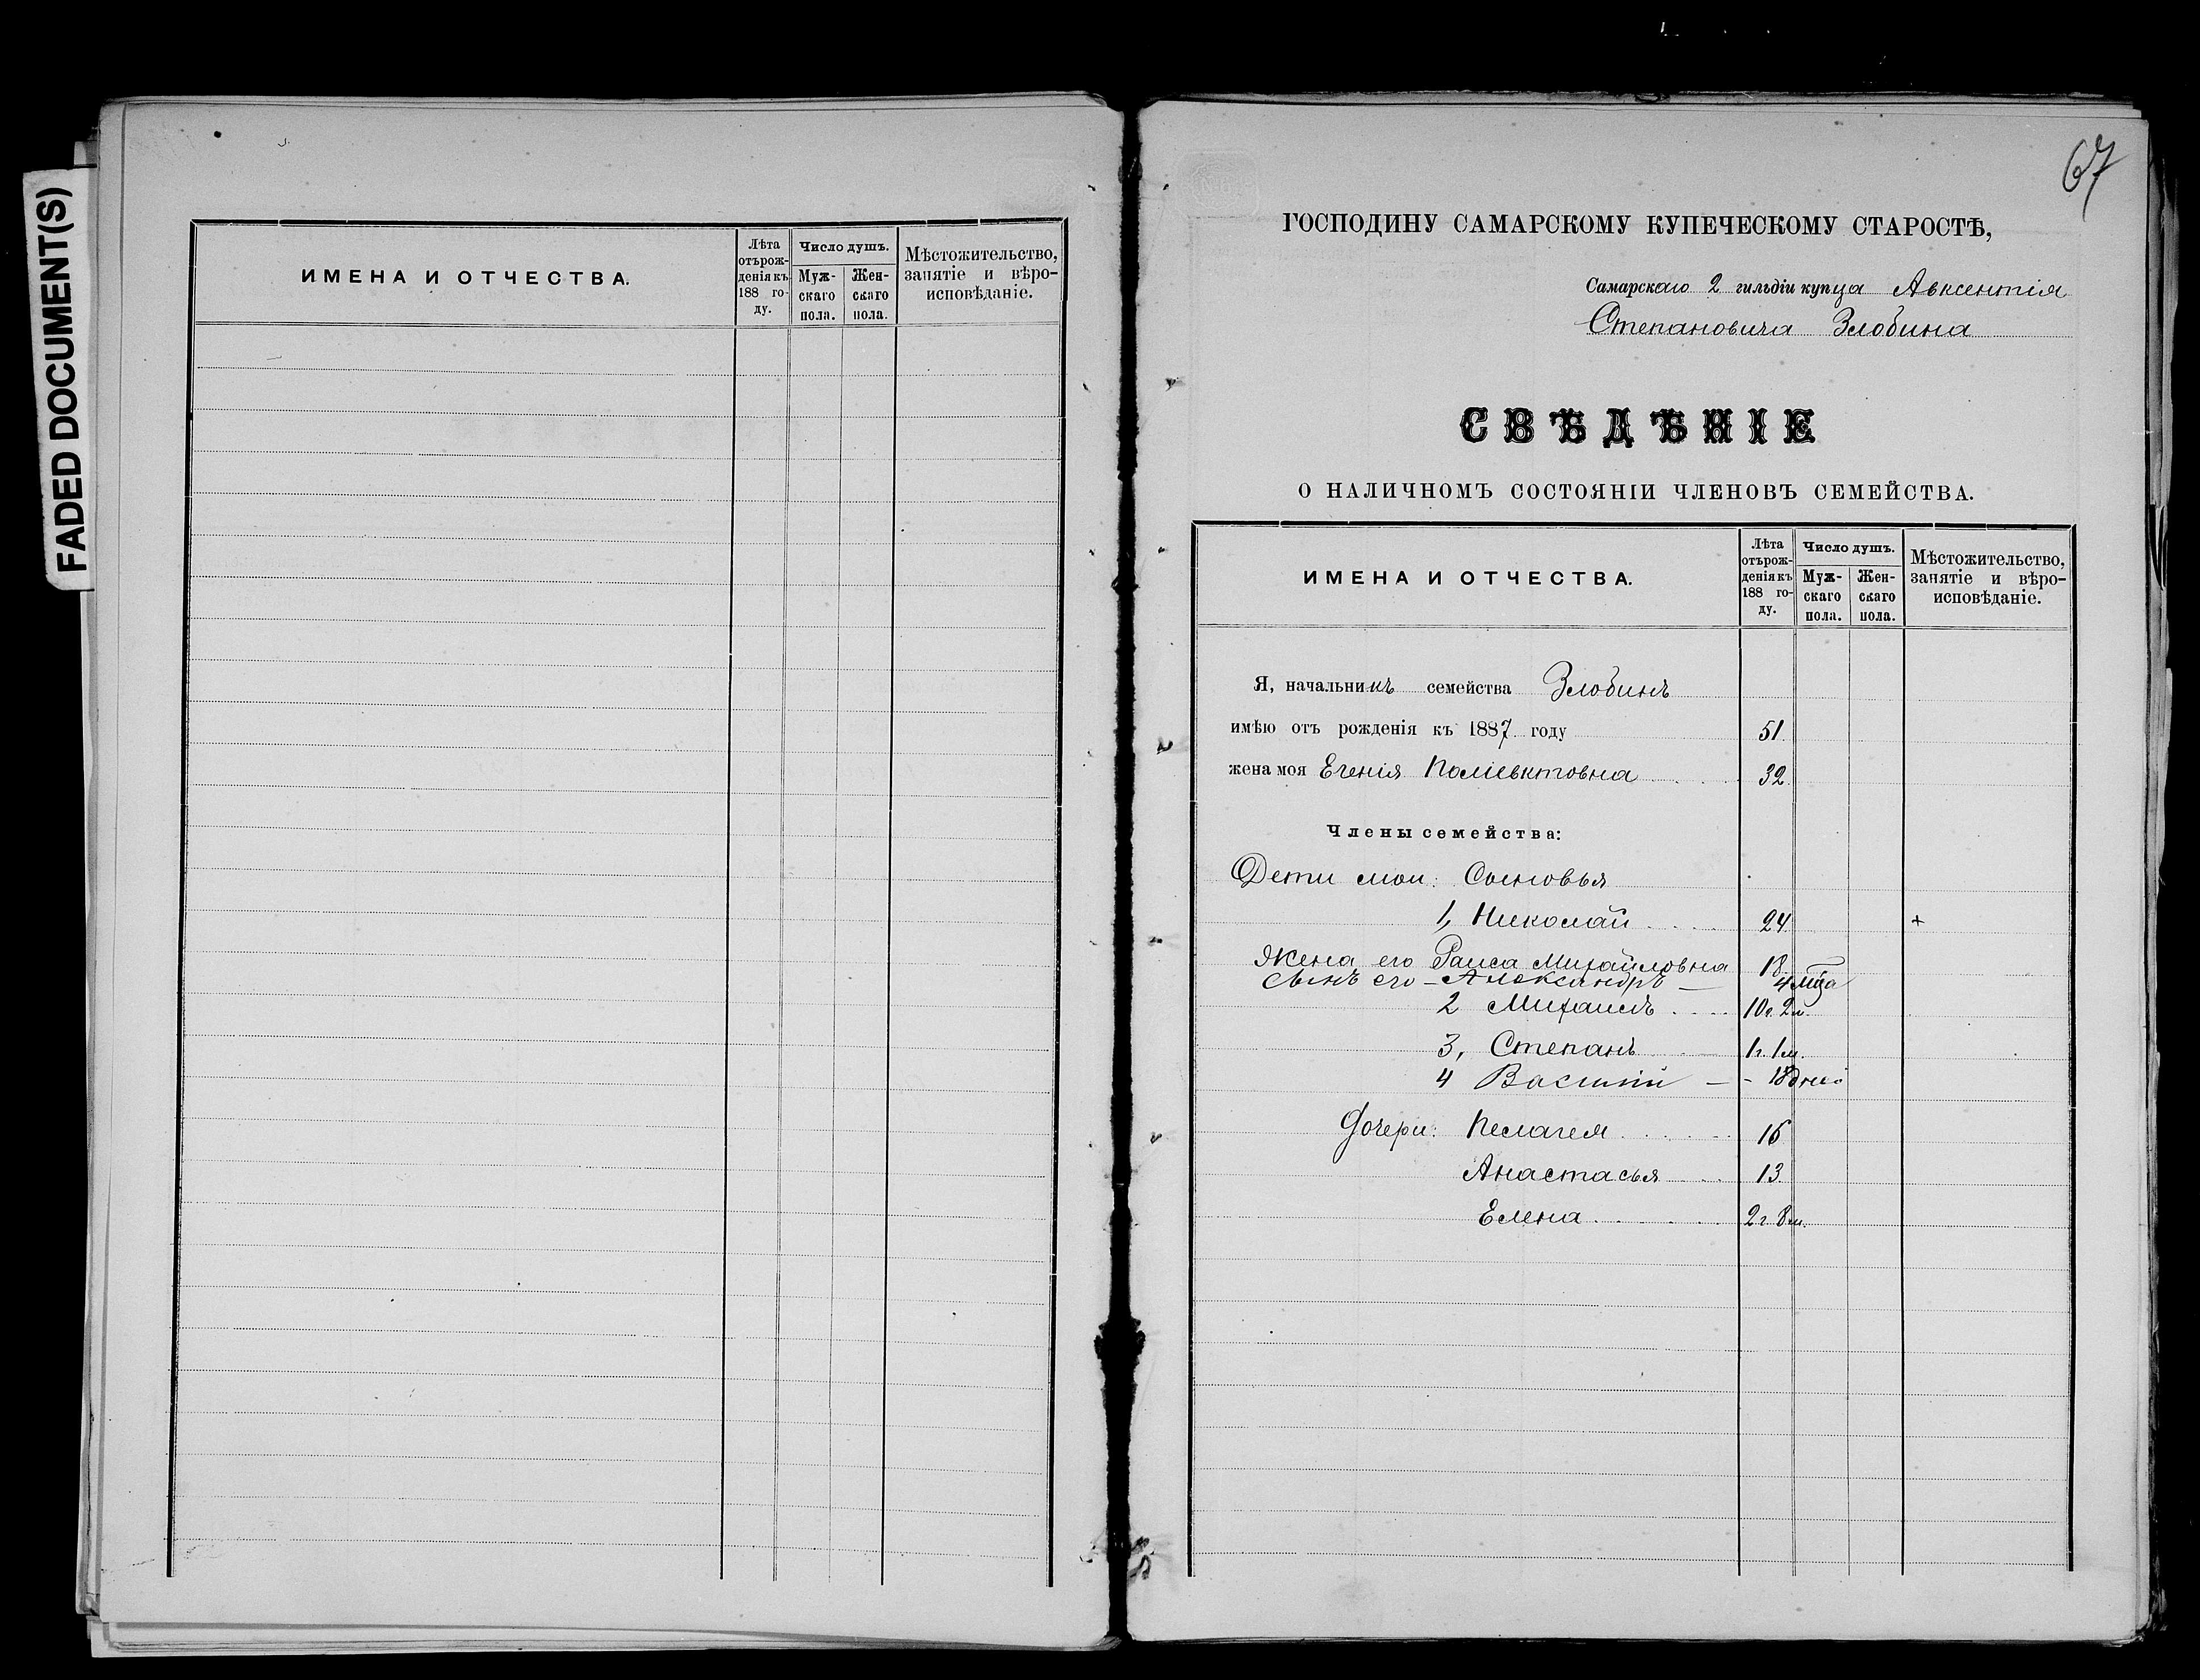 FADED DOCUMENT(S)
ИМЕНА И ОТЧЕСТВА.
Лѣта
отърож-
денія къ
188 го-
ду.
Число душъ.
Муж-
скаго
пола.
Жен-
скаго
пола.
Мѣстожительство,
занятіе и вѣро-
исповѣданіе.
67
ГОСПОДИНУ САМАРСКОМУ КУПЕЧЕСКОМУ СТАРОСТѢ,
Самарскаго 2 гильдіи купца Авксентія
Степановича Злобина
СВѢДѢНІЕ
О НАЛИЧНОМЪ СОСТОЯНІИ ЧЛЕНОВЪ СЕМЕЙСТВА.
ИМЕНА И ОТЧЕСТВА.
Лѣта
отърож-
денія къ
188 го-
ду.
Число душъ.
Муж-
скаго
пола.
Жен-
скаго
пола.
Мѣстожительство,
занятіе и вѣро-
исповѣданіе.
Я, начальникъ семейства Злобинъ
имѣю отъ рожденія къ 1887 году 51.
жена моя Егенія Поліевктовна 32.
Члены семейства:
Дети мои: Сыновья
1, Николай 24 +
Жена его Раиса Михайловна 18
сынъ его - Александръ - 4 мца
2 Михаилъ 10г. 2м.
3, Степанъ 1г. 1м.
4 Василій - - 18 дней
Дочери: Пелагея 16
Анастасья 13.
Елена 2г. 8м.